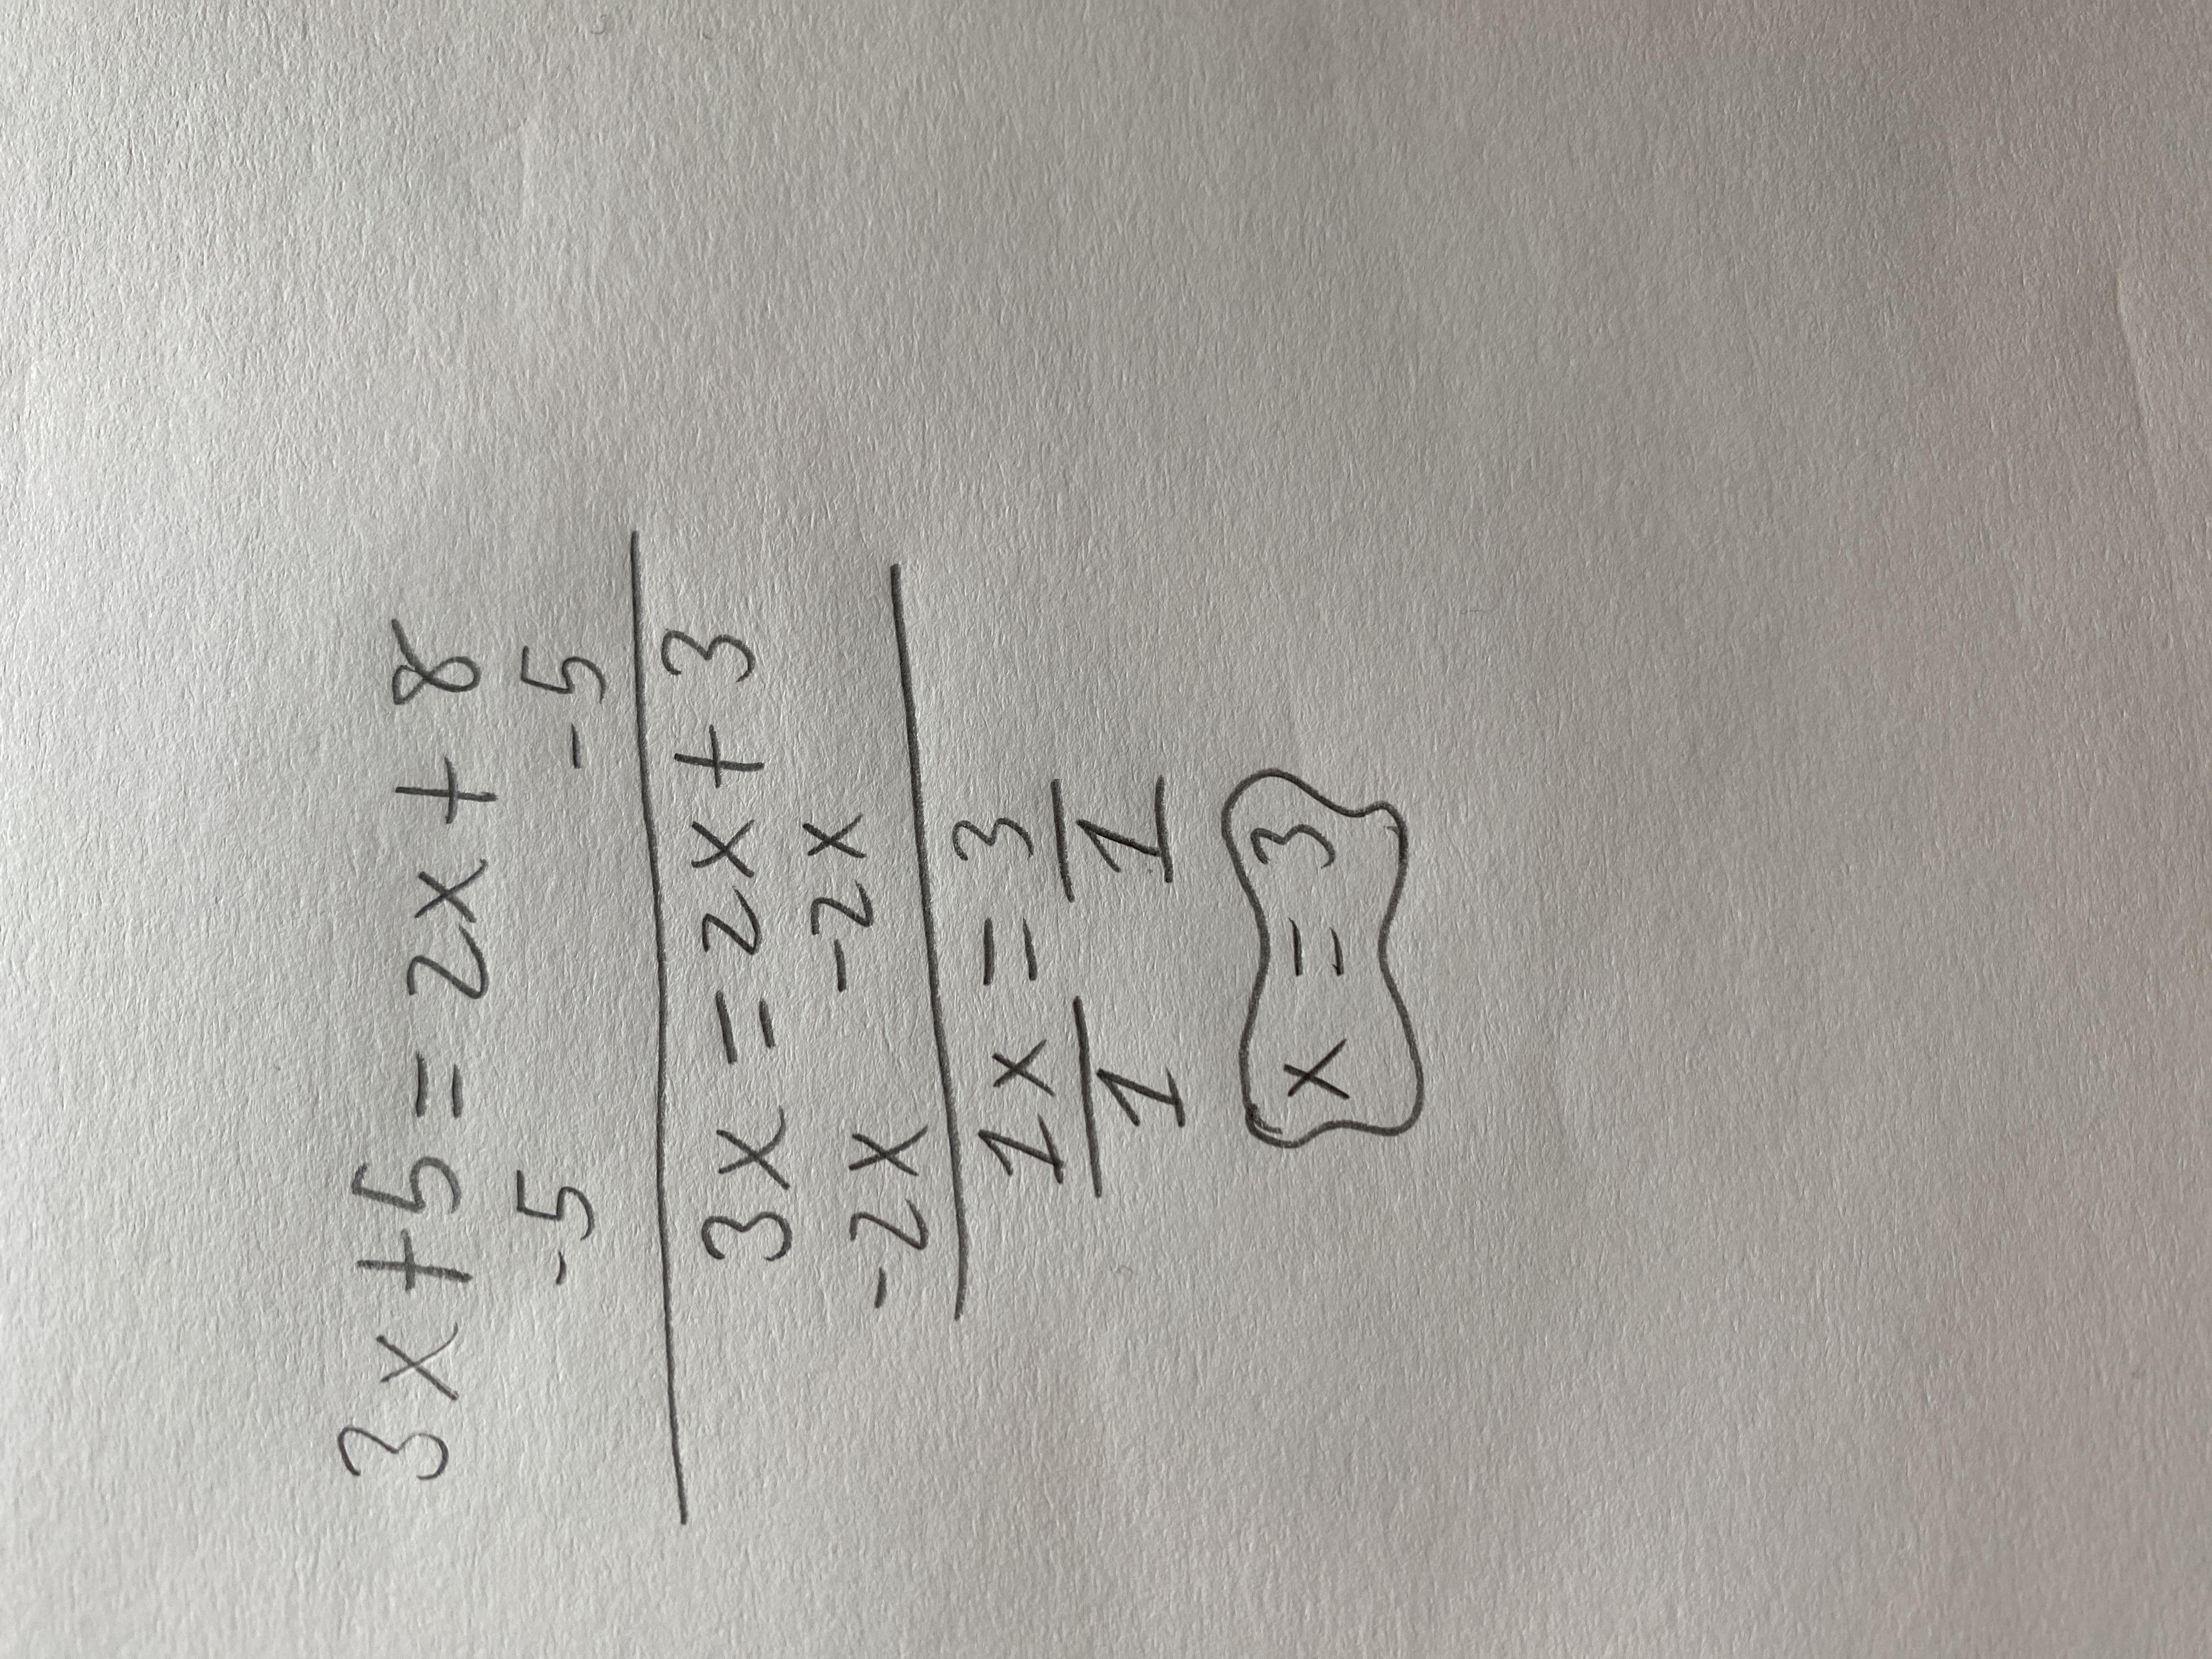 3x+5=2x+8
-5 -5
3x=2x+3
-2x -2x
1x=3
1 1
x=3